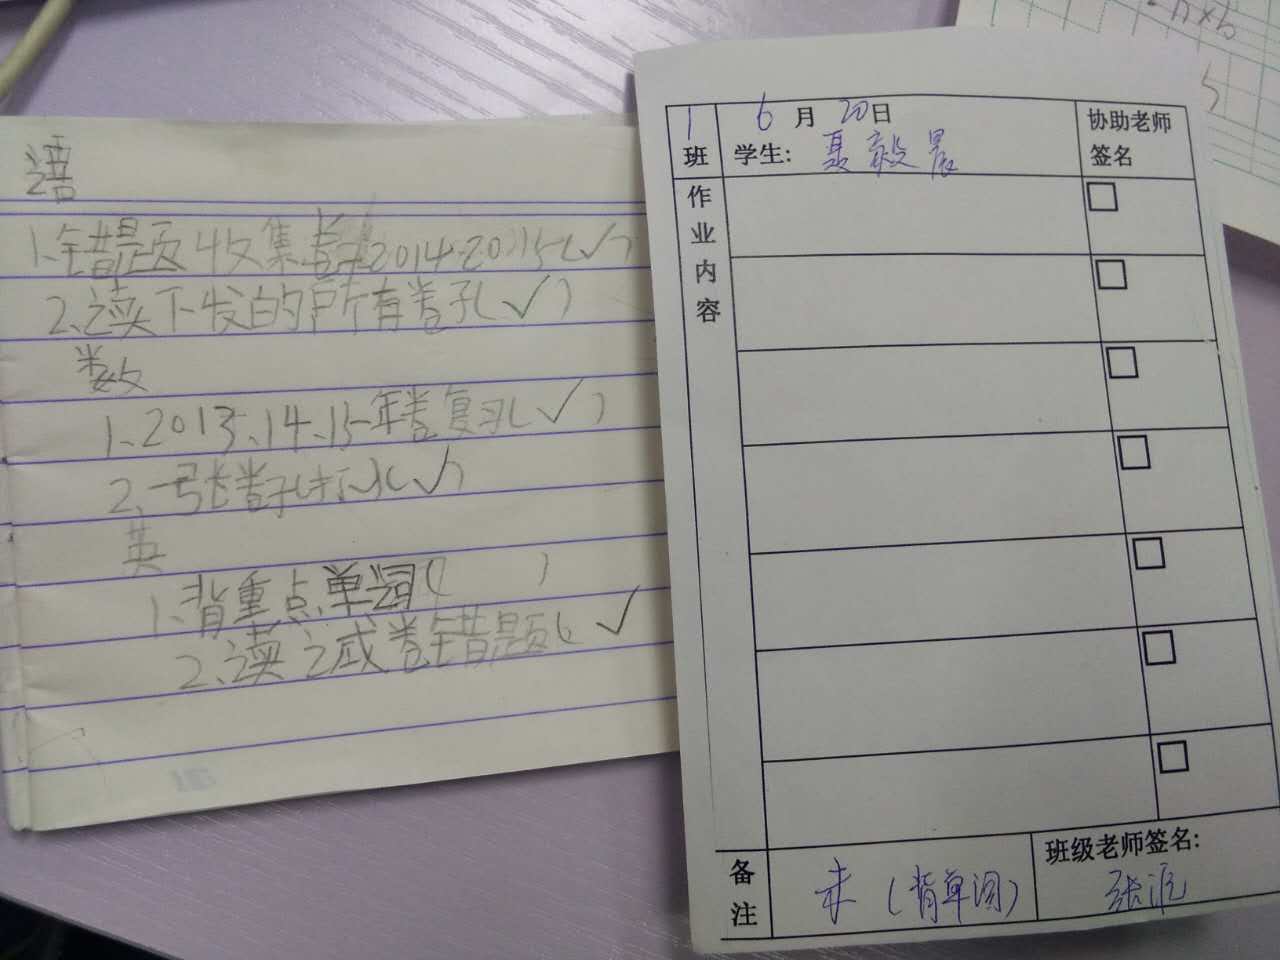 语
1、错题收集卷子2014-2015(✓)
2、读下发的所有卷子(✓)
数
1、2013、14、15年卷复习(✓)
2、一张卷子(✓)
英
1、背重点单词( )
2、读之或卷错题(✓
1班
6月20日
学生: 夏毅晨
协助老师
签名
作业内容
备注
未(背单词)
班级老师签名:
张